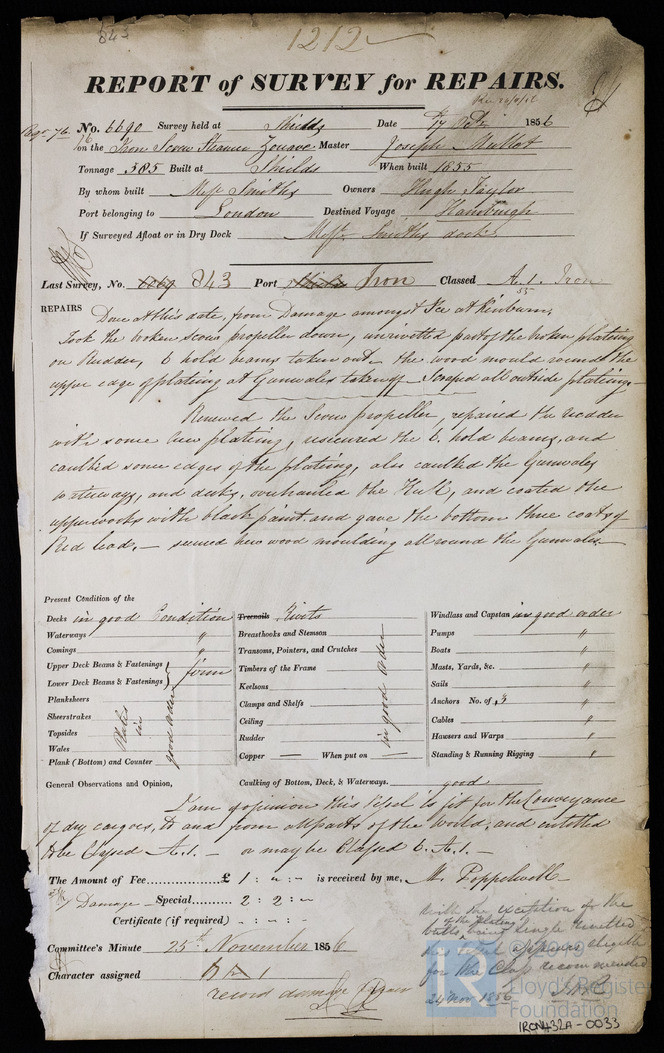 843 1212
REPORT of SURVEY for REPAIRS.
No. 6690 Survey held at Shields Date 1856
on the Iron Screw Steamer Zouave Master Joseph
Tonnage 385 Built at Shields When built 1855
By whom built Messrs Smiths Owners Hugh Taylor
Port belonging to London Destined Voyage Hamburgh
If Surveyed Afloat or in Dry Dock Messrs Smiths dock
Last Survey, No. 843 Port Iron Classed A.1. Iron
55
REPAIRS Done at this date, from Damage amongst Ice at Kinburn,
Took the broken screw propeller down, unrivetted part of the broken plating
on Rudder, 6 hold beams taken out the wood mould round the
upper edge of plating at Gunwales taken off Scraped all outside plating
Renewed the Screw propeller, repaired the rudder
with some new plating, resecured the 6 hold beams, and
caulked some edges of the plating, also caulked the Gunwales
waterways, and decks, overhauled the Hull, and coated the
upperworks with black paint and gave the bottom three coats of
Red lead, — secured new wood moulding all round the Gunwales —
Present Condition of the
Decks in good Condition Treenails Rivets Windlass and Capstan in good order
Waterways " Breasthooks and Stemson Pumps "
Comings " Transoms, Pointers, and Crutches Boats "
Upper Deck Beams & Fastenings } firm Timbers of the Frame Masts, Yards, &c. "
Lower Deck Beams & Fastenings } Keelsons Sails "
Planksheers Clamps and Shelfs Anchors No. of 3 "
Sheerstrakes Ceiling Cables "
Topsides Rudder Hawsers and Warps "
Wales Copper — When put on — Standing & Running Rigging "
Plank (Bottom) and Counter
Plates in good order
in good order
General Observations and Opinion, Caulking of Bottom, Deck, & Waterways. good
I am of opinion this Vessel is fit for the Conveyance
of dry cargoes, to and from all parts of the World, and entitled
to be Classed A.1. — or may be Classed 6. A.1. —
The Amount of Fee £ 1 : " : - is received by me, M. Poppelwell
Damage — Special 2 : 2 : -
Certificate (if required) - : - : -
Committee's Minute 25th November 1856
Character assigned
record damage repair
with the exception of the
butts of the plating being single rivetted
this vessel appears eligible
for the Class recommended
24 Nov 1856
© 2019
Lloyd's Register
Foundation
IRON432A-0033